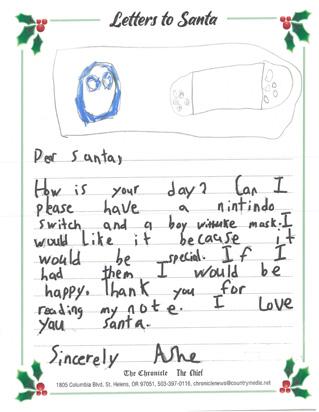 Letters to Santa
Dear Santa,
How is your day? Can I
please have a nintindo
switch and a boy mask. I
would like it because it
would be special. If I
had them I would be
happy. Thank you for
reading my note. I Love
you Santa.
Sincerely Ashe
The Chronicle The Chief
1805 Columbia Blvd, St. Helens, OR 97051, 503-397-0116, chroniclenews@countrymedia.net